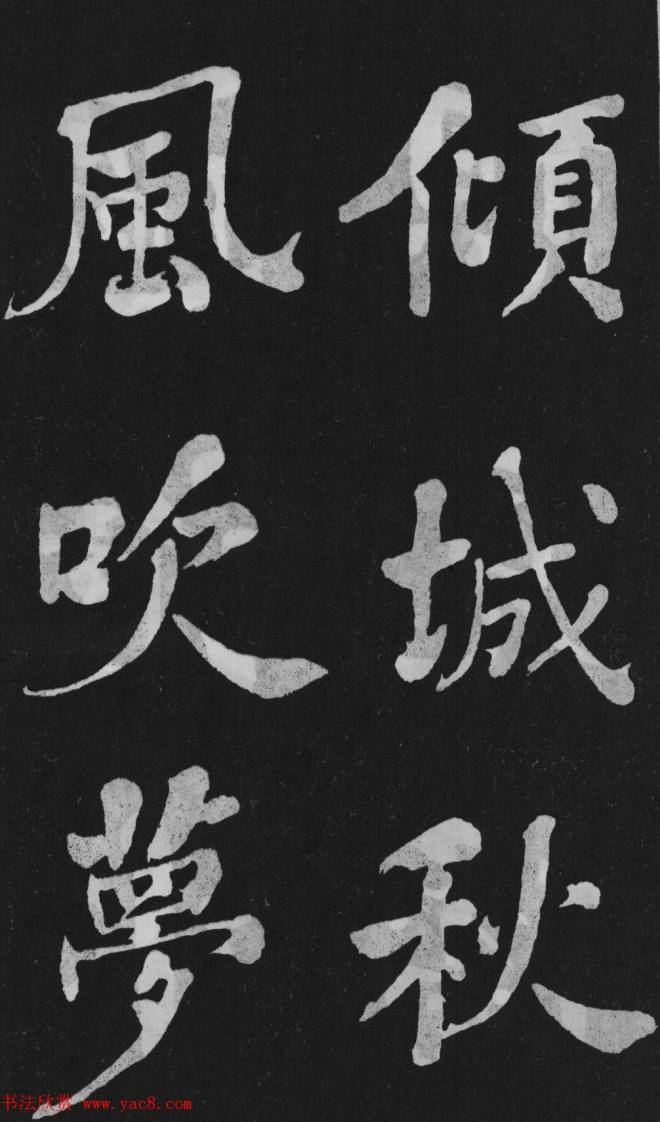 傾城秋
風吹夢
书法欣赏 www.yac8.com